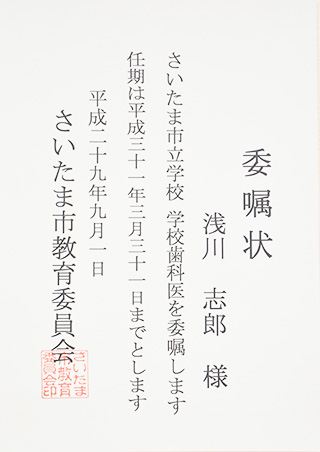 委嘱状
浅川 志郎 様
さいたま市立学校 学校歯科医を委嘱します
任期は平成三十一年三月三十一日までとします
平成二十九年九月一日
さいたま市教育委員会
さいたま
市教育
委員会印